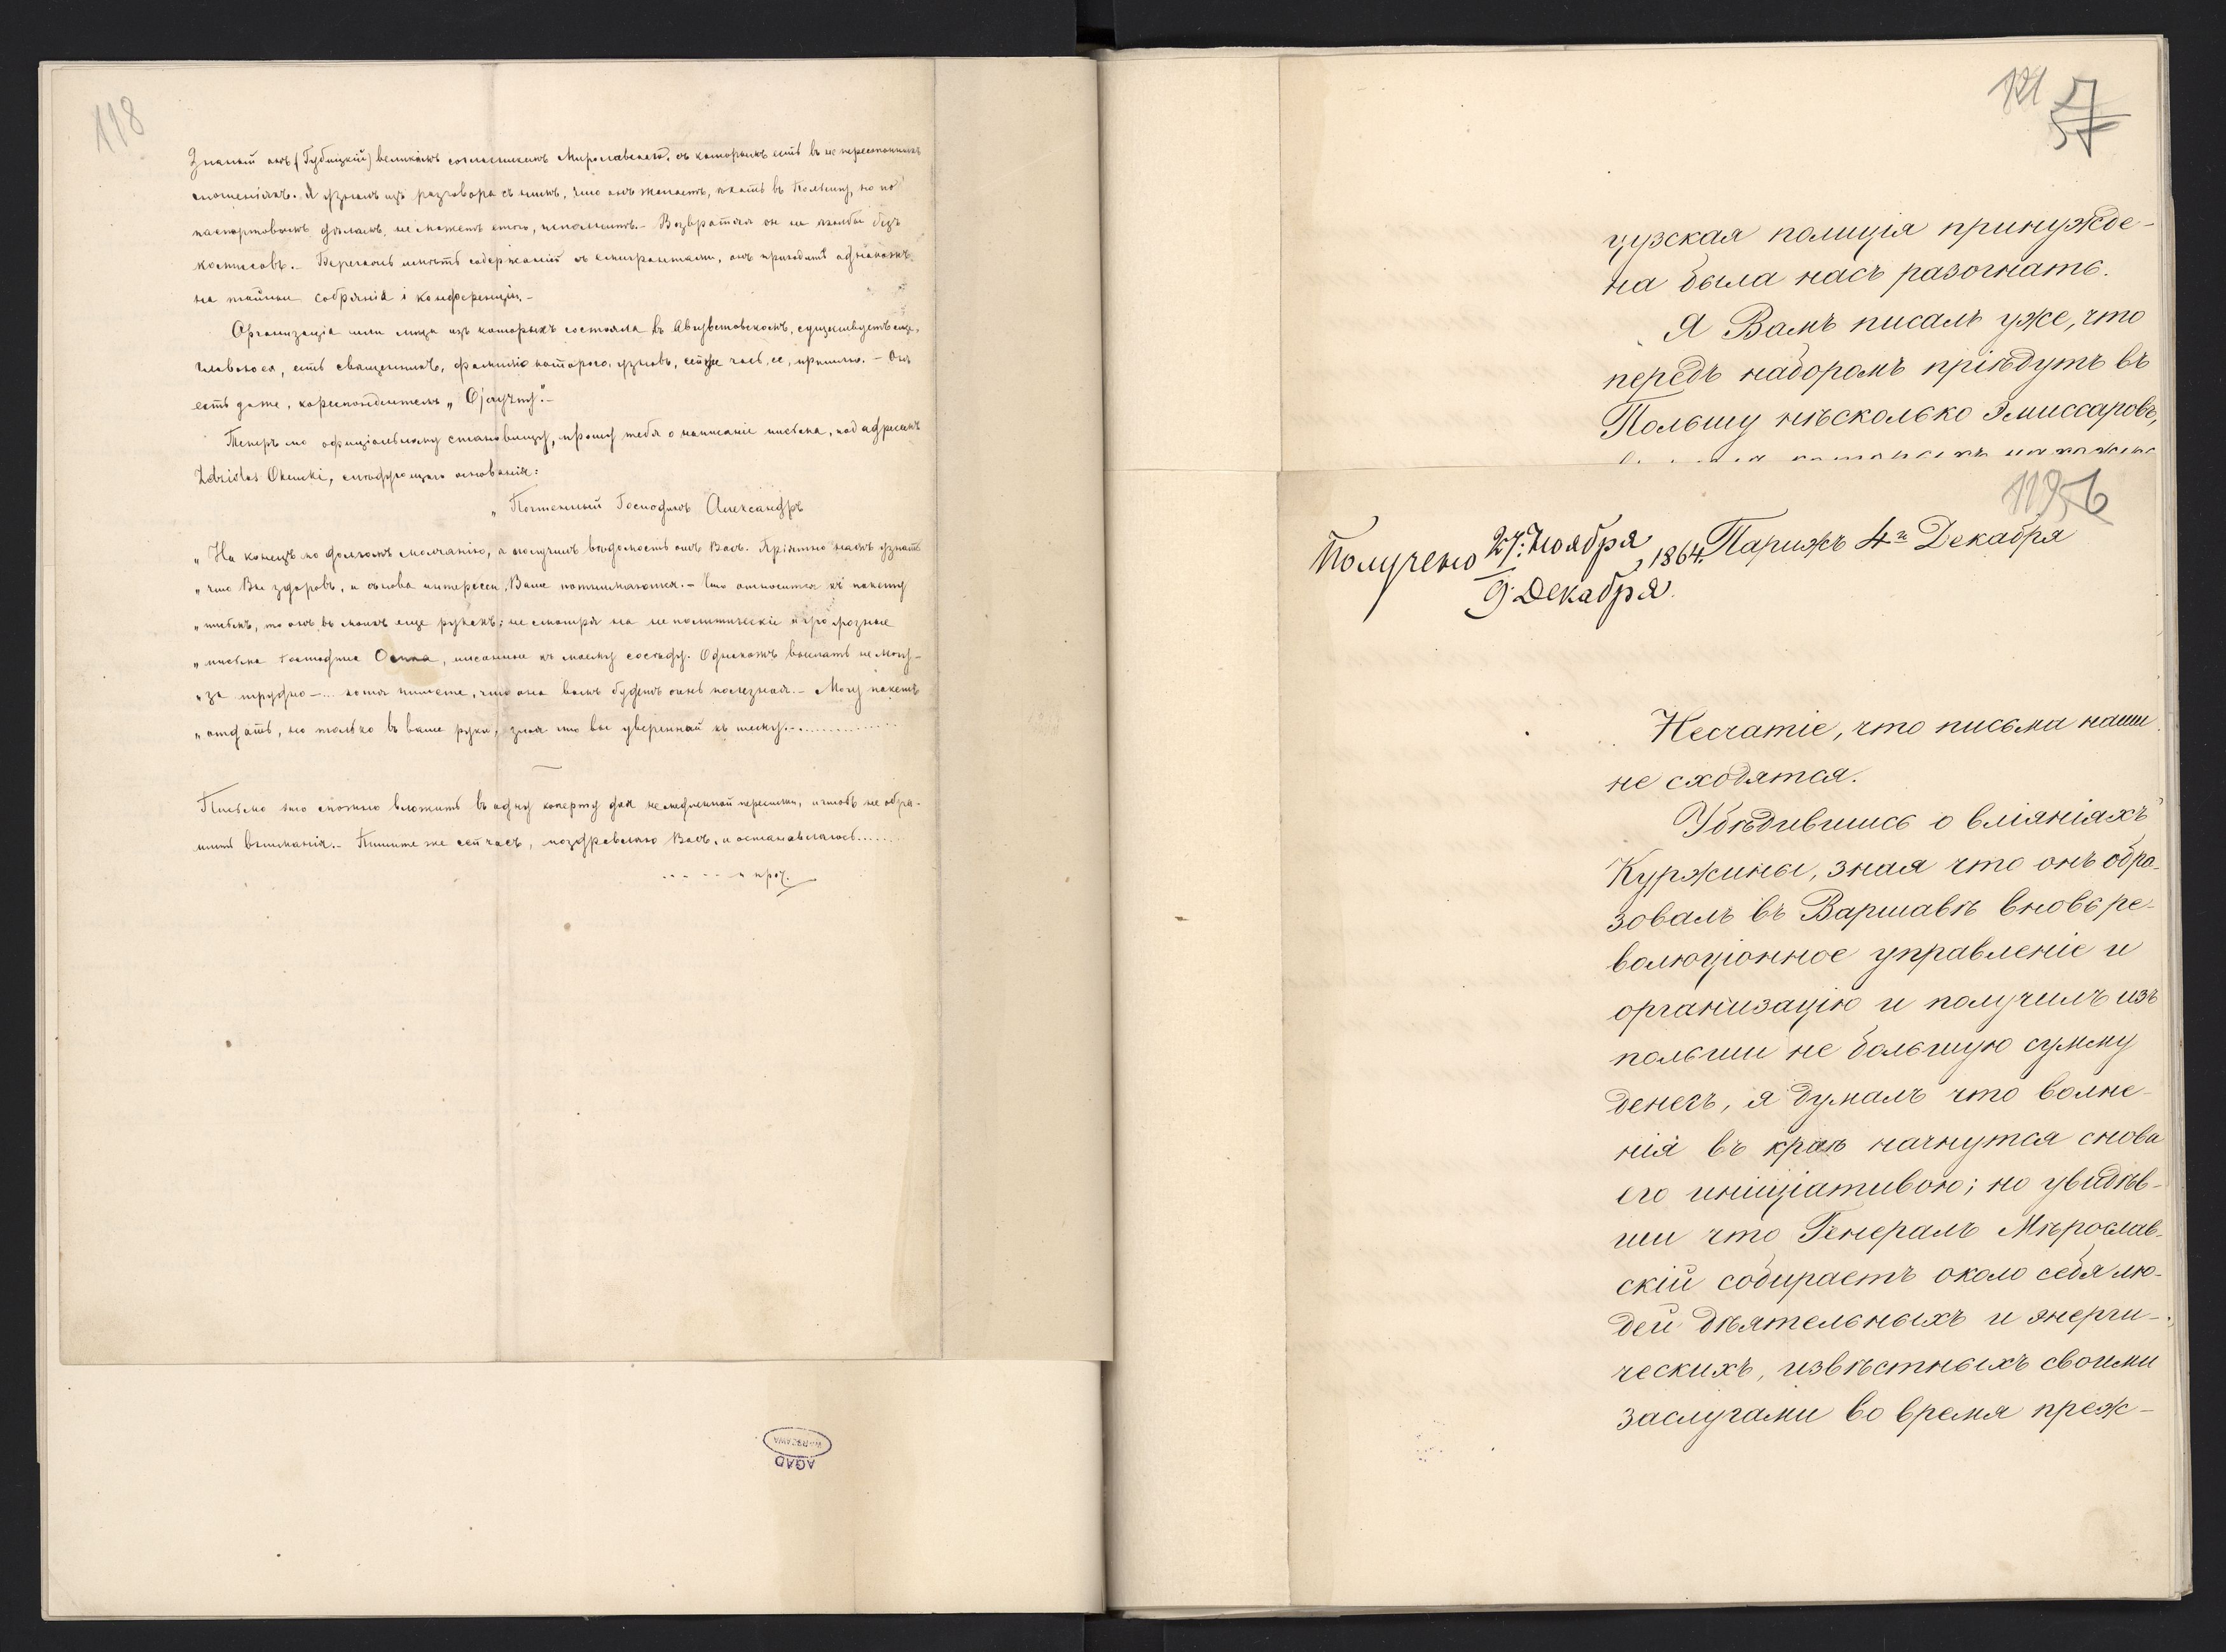 118
Знаный онъ (Губицкій) великимъ согласникомъ Мирославского, съ которымъ есть въ не перестанныхъ
сношеніяхъ. Я узналъ изъ разговора съ нимъ, что онъ желаетъ, ѣхать въ Польшу, но по
паспортовымъ дѣламъ, не можетъ етого, исполнить.- Возвратился он не якобы безъ
комисовъ.- съ емигрантами, онъ приходитъ однакожъ
на тайныи собранія і конференціи.-
Организація или лица изъ которыхъ состояла въ Августовскомъ, существуетъ еще,
главою ея, есть священникъ, фамилію которого, узновъ, сей же часъ, ее, пришлю. - Онъ
есть даже, кореспондентемъ „Ojczyzny".-
Теперь по офиціальному становищу, прошу тебя о написаніе письма, под адресамъ
Zdzislas Okencki, слѣдующаго основанія:
„Почтенный Господинъ Александръ
„На конецъ по долгомъ молчанію, я получилъ вѣдомость отъ Васъ. Пріятно намъ узнать
„что Вы здоровъ, и снова интересси, Ваше потшимаются.- Что относится къ пакету
„письмъ, то онъ въ моихъ еще рукахъ; не смотря на не политическіе и грозные
„письма Господина писанные къ моему сосѣду. Однакожъ выслать не могу-
„за трудно-... хотя пишете, что она вамъ будетъ очень полезная.- Могу пакетъ
„отдать, но только въ ваше руки, зная что вы увереннай къ тему.-..............
Письмо это сможно вложить въ одну коперту для немедленной пересилки, и чтобъ не обра-
тить вниманія.- Пишите же сей часъ, поздравляю Васъ, и останавлаюсь......
..... и проч.
AGAD
WARSZAWA
121 57
цузская полиція принужде-
на была насъ разогнать.
Я Вамъ писалъ уже, что
передъ наборомъ пріѣдутъ въ
Польшу нѣсколько Эмиссаровъ,
119 56
Получено 27. Ноября / 9 Декабря, 1864. Парижъ 4го Декабря
Несчатіе, что письма наши
не сходятся.
Убѣдившись о вліяніяхъ
Куржины, зная что онъ обра-
зовалъ въ Варшавѣ вновь ре-
волюціонное управленіе и
организацію и получилъ изъ
польши не большую сумму
денегъ, я думалъ что волне-
нія въ краѣ начнутся снова
его иниціативою; но увидѣв-
ши что Генералъ Мѣрослав-
скій собираетъ около себя лю-
дей дѣятельныхъ и энерги-
ческихъ, извѣстныхъ своими
заслугами во время преж-